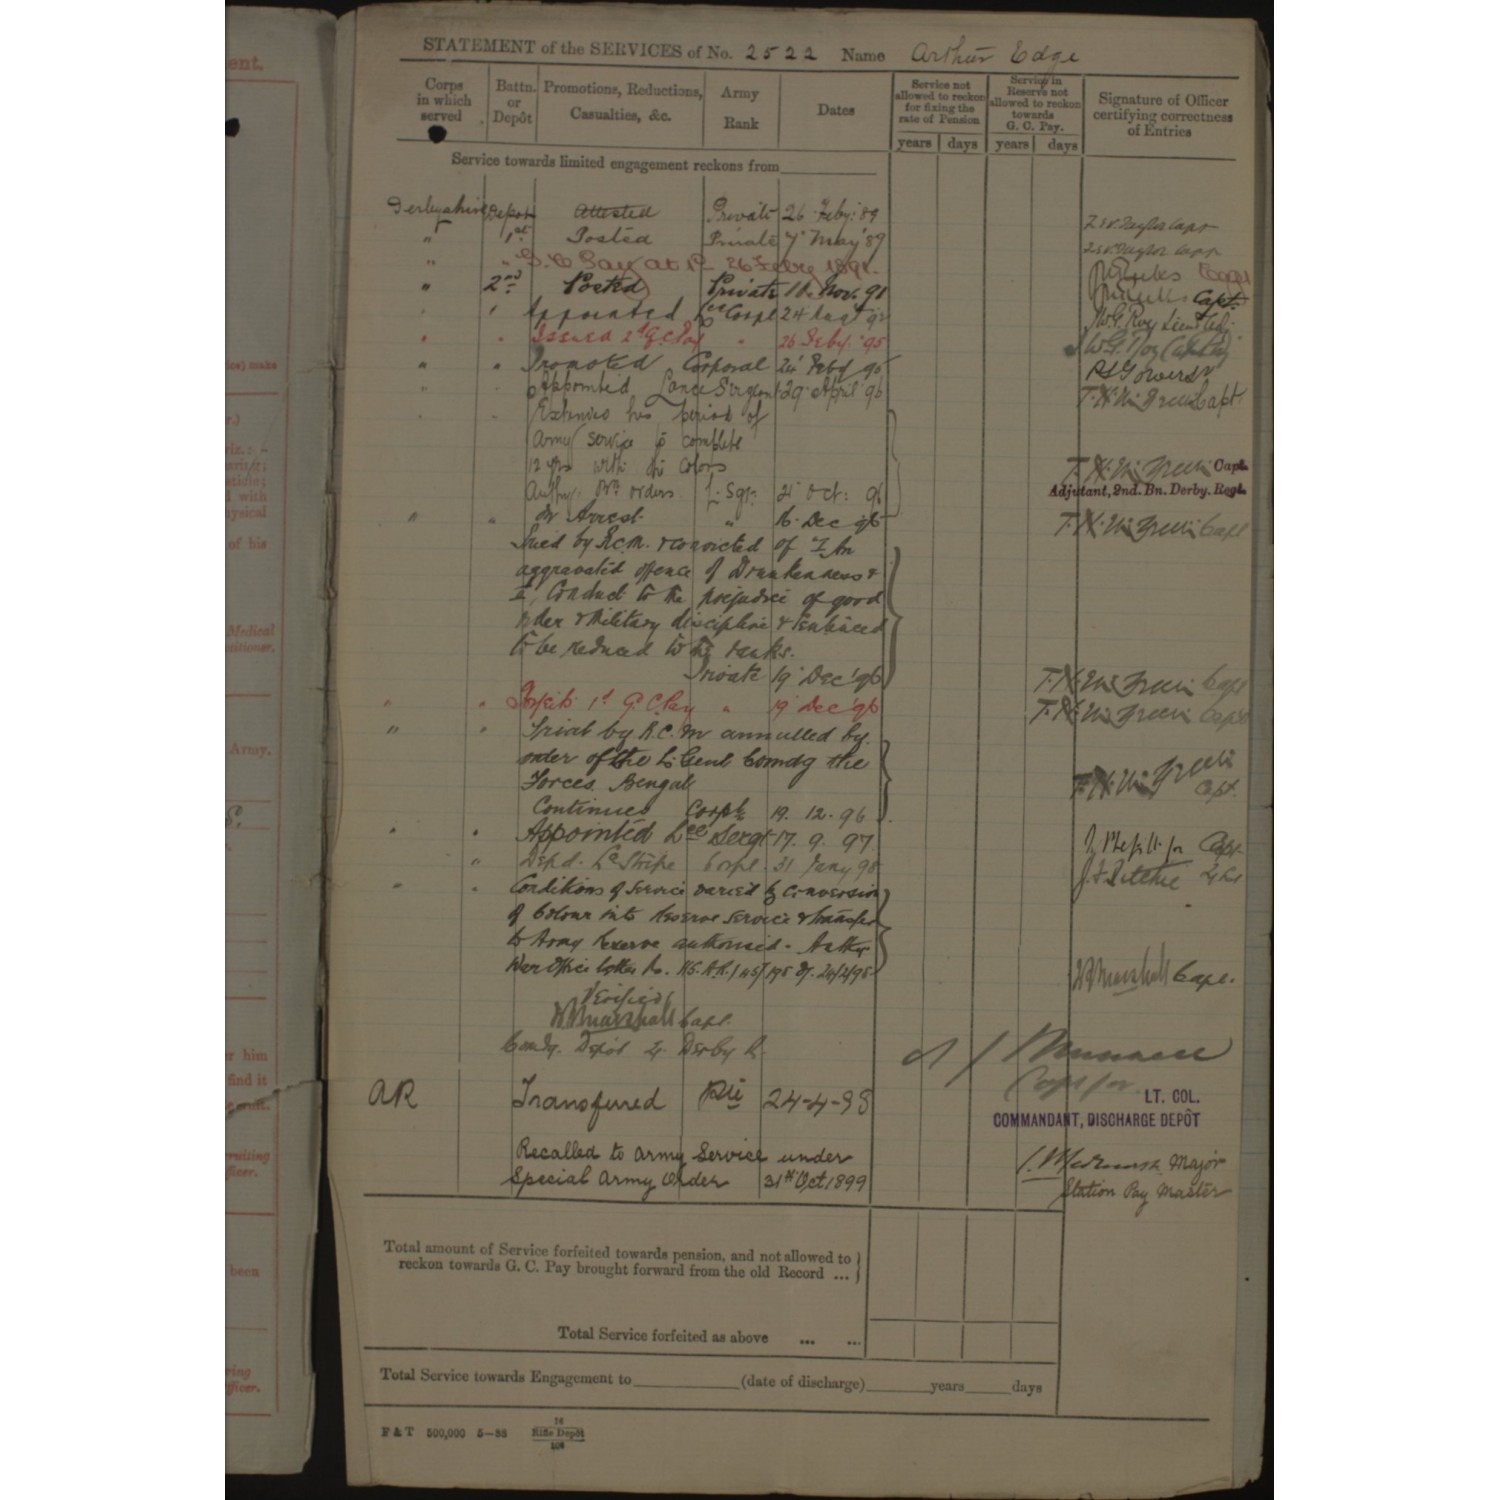 STATEMENT of the SERVICES of No. 2522 Name Arthur Edge
Corps in which served
Battn. or Depôt
Promotions, Reductions, Casualties, &c.
Army Rank
Dates
Service not allowed to reckon for fixing the rate of Pension
Service in Reserve not allowed to reckon towards G. C. Pay.
Signature of Officer certifying correctness of Entries
years days years days
Service towards limited engagement reckons from
Derbyshire Depot Attested Private 26 Feby: 89
" 1st Posted Private 7 May 89
" " G. C. Pay at 1d 26 Feby 1891.
" 2nd Posted Private 11. Nov. 91 Capt.
" " Appointed Lce Corpl 24 Augt 92
" " Issued 2d G.C. Pay " 26 Feby. 95
" " Promoted Corporal 24 Feby 96
" " Appointed Lance Sergeant 29 April 96 Capt.
" " Extends his period of
Army service to complete
12 yrs with the Colors Capt.
Authy. Bn orders L. Sgt. 21 Oct: 96 Adjutant, 2nd. Bn. Derby. Regt.
" " In Arrest " 16. Dec 96 Capt
Tried by R.C.M. & convicted of I An
aggravated offence of Drunkenness &
II Conduct to the prejudice of good
order & Military discipline & sentenced
to be reduced to the ranks.
Private 19 Dec '96 Capt
" " Forfeits 1d G.C. Pay " 19 Dec '96 Capt
" " Trial by R.C.M annulled by
order of the Lt Genl Comdg the
Forces. Bengal Capt.
Continues Corpl 19. 12. 96
" " Appointed Lce Sergt 17. 9. 97 Capt
" Depd. Lce Stripe Corpl. 31 Jany 98 J. F. Ritchie
" " Conditions of Service varied by conversion
of Colour into Reserve Service & transfer
to Army Reserve authorised. Authy
War Office letter No.
Marshall Capt.
Verified
Marshall Capt.
Comdg. Depôt Derby R.
AR Transferred Pte 24-4-98
Capt for LT. COL.
COMMANDANT, DISCHARGE DEPÔT
Recalled to Army Service under
Special Army Order 31st Oct 1899
Major
Station Pay Master
Total amount of Service forfeited towards pension, and not allowed to
reckon towards G. C. Pay brought forward from the old Record ...
Total Service forfeited as above ... ...
Total Service towards Engagement to (date of discharge) years days
F & T 500,000 5—88 16 Rifle Depôt 106
ent.
ice) make
r.)
with
hysical
of his
Medical
Army.
r him
find it
ficer.
been